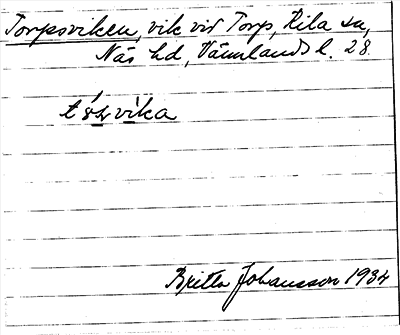 Torpsviken, vik vid Torp, Kila sn,
Näs hd, Värmlands l. 28.
vika
Britta Johansson 1934